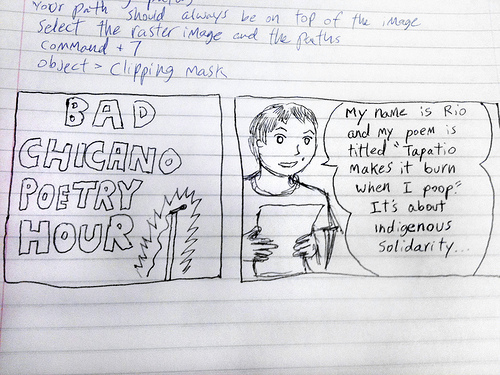 Your path
should always be on top of the image
Select the raster image and the paths
command + 7
object > Clipping mask
BAD
CHICANO
POETRY
HOUR
My name is Rio
and my poem is
titled "Tapatio
makes it burn
when I poop."
It's about
indigenous
Solidarity...